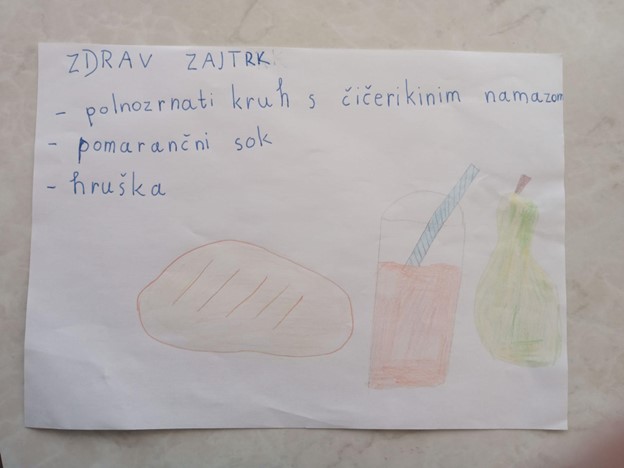 ZDRAV ZAJTRK:
- polnozrnati kruh s čičerikinim namazom
- pomarančni sok
- hruška